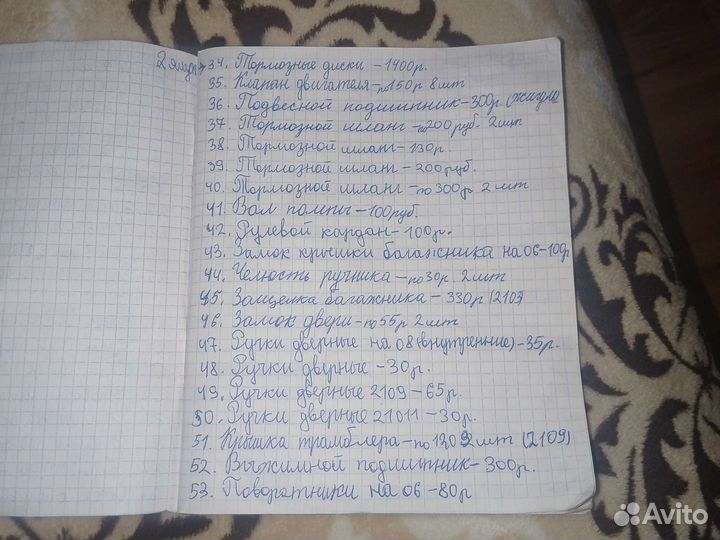 2 ящик → 34. Тормозные диски - 1400р.
35. Клапан двигателя - по 150р 8 шт
36. Подвесной подшипник - 300р. (жигули)
37. Тормозной шланг - по 200 руб. 2 шт
38. Тормозной шланг - 130р.
39. Тормозной шланг - 200 руб.
40. Тормозной шланг - по 300р 2 шт
41. Вал помпы - 100 руб.
42. Рулевой кардан - 100р.
43. Замок крышки багажника на 06 - 100р
44. Челюсть ручника - по 30р. 2 шт
45. Защелка багажника - 330р (2107)
46. Замок двери - по 55р 2 шт
47. Ручки дверные на 08 (внутренние) - 35р.
48. Ручки дверные - 30р.
49. Ручки дверные 2109 - 65р.
50. Ручки дверные 21011 - 30р.
51. Крышка трамблера - по 120 2 шт (2109)
52. Выжимной подшипник - 300р.
53. Поворотники на 06 - 80р
Avito